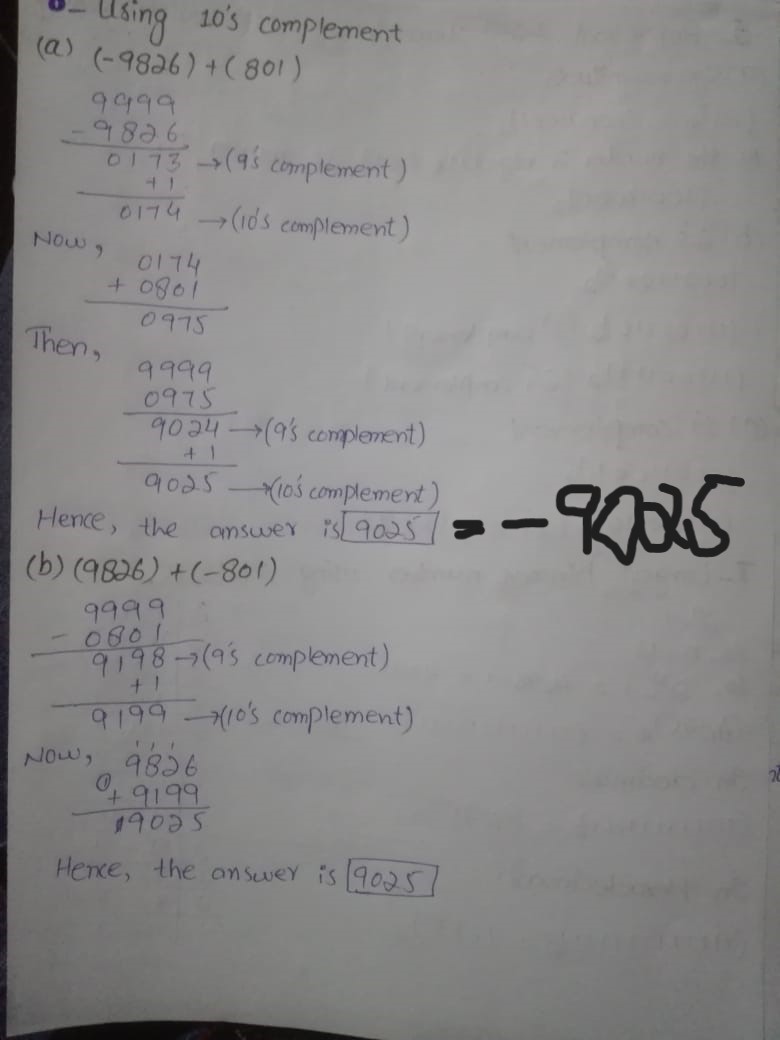 6- Using 10's complement
(a) (-9826) + (801)
9999
- 9826
0173 →(9's complement)
+1
0174 →(10's complement)
Now,
0174
+ 0801
0975
Then,
9999
0975
9024 →(9's complement)
+1
9025 →(10's complement)
Hence, the answer is 9025 = -9025
(b) (9826) + (-801)
9999
- 0801
9198 →(9's complement)
+1
9199 →(10's complement)
Now,
9826
+ 9199
19025
Hence, the answer is 9025